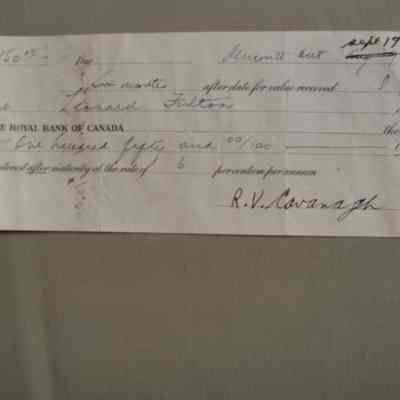 150.00 Due Ont Sept 19
months after date for value received
Leonard Fulton
E ROYAL BANK OF CANADA the
One hundred fifty and 00/100
nterest after maturity at the rate of 6 per centum per annum
R.V. Cavanagh